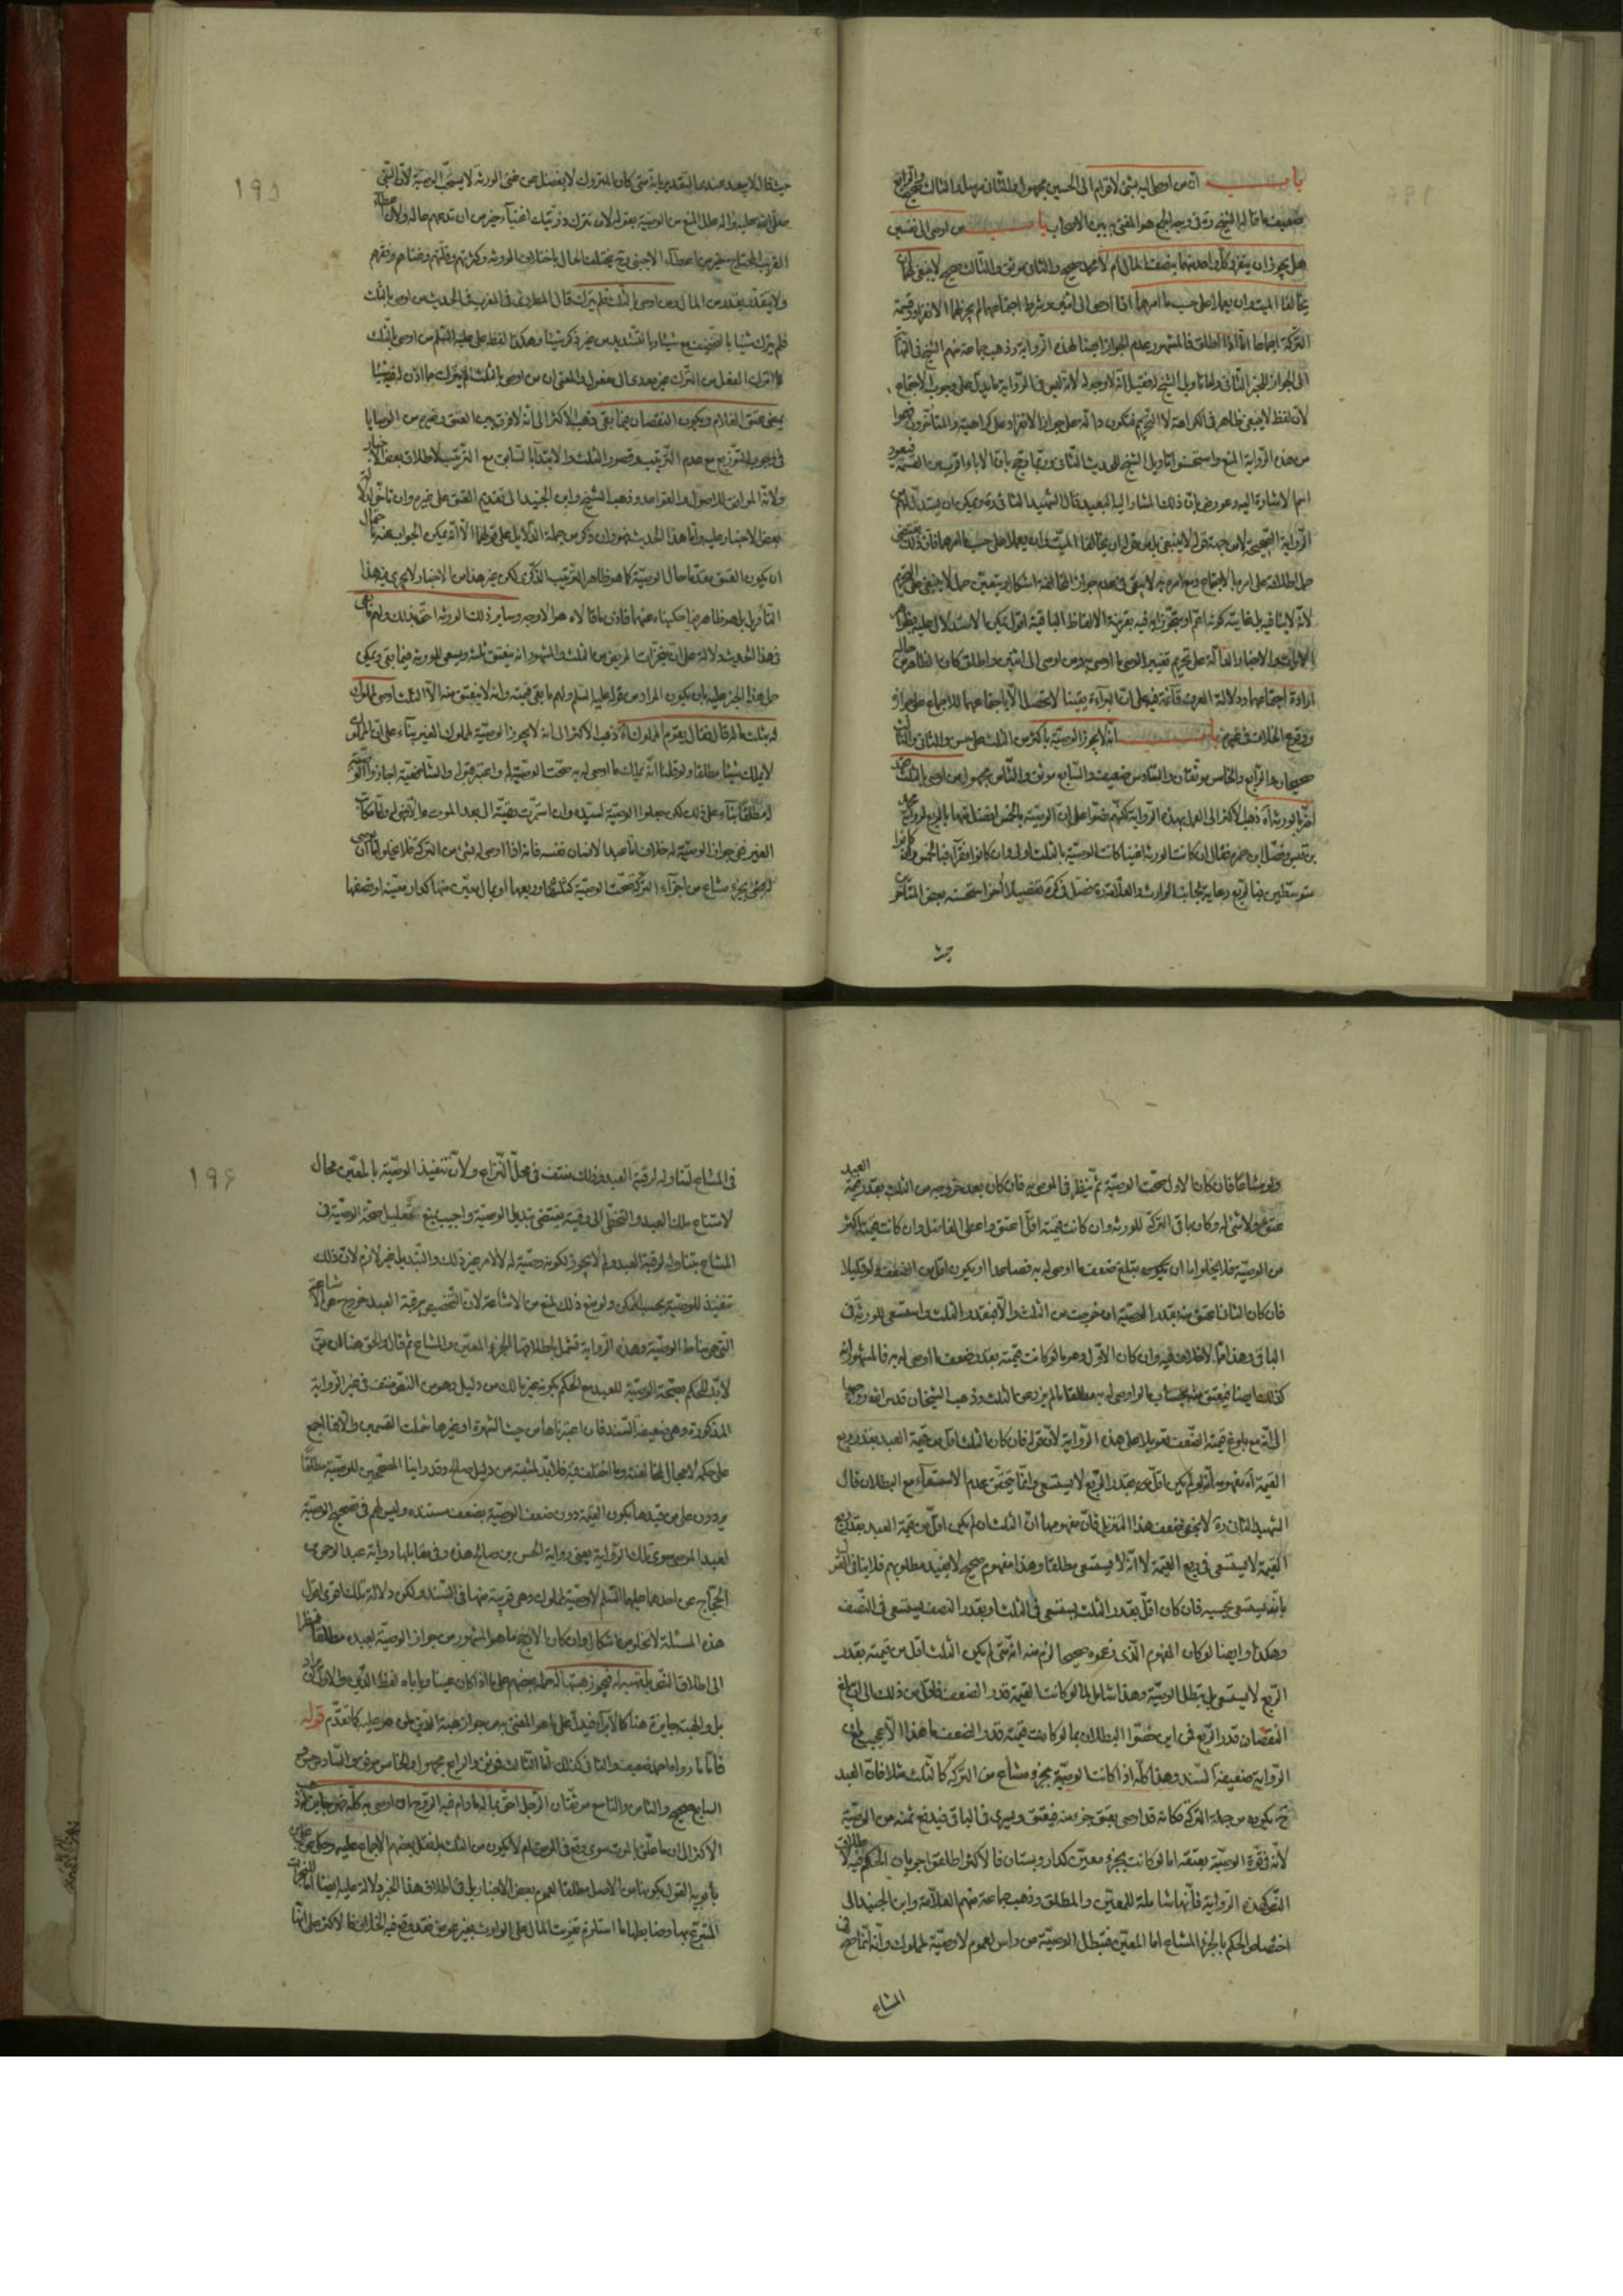 باب ان من اوصى اليه بشئ لاقوام الى الحسين مجهول والثانى مهمل والثالث صحيح والرابع
ضعيف ما قاله الشيخ ره فى وجه الجمع هو المفتى به بين الاصحاب باب من اوصى الى نفسين
هل يجوز ان ينفرد كل واحد منهما بنصف المال ام لا محمد صحيح والثانى موثق والثالث صحيح لا ينبغى لهما ان
يخالفا الميت وان يعملا على حسب ما امرهما اذا اوصى الى اثنين وشرط اجتماعهما لم يجز لهما الانفراد وقسمة
التركة اجماعا اما اذا اطلق فالمشهور عدم الجواز ايضا لهذه الرواية وذهب جماعة منهم الشيخ فى النهاية
الى الجواز للخبر الثانى واما تاويل الشيخ له فقيل انه لا وجه له لانه ليس فى الرواية ما يدل على وجوب الاجتماع
لان لفظ لا ينبغى ظاهر فى الكراهة لا التحريم فتكون دالة على جواز الانفراد على كراهية والمتأخرون فهموا
من هذه الرواية المنع واستحسنوا تاويل الشيخ للحديث الثانى وربما وجه بان الاباء اقرب من القسمة فيعود
اسم الاشارة اليه وعورض بان ذلك المشار اليه البعيد قال الشهيد الثانى ره ويمكن ان يستدل لهم
الرواية الصحيحة لا من جهة قوله لا ينبغى بل من قوله ان يخالفا الميت وان يعملا على حسب ما امرهما فان ذلك يقتضى
حمل اطلاقه على امره بالاجتماع ومع امره به لا يبقى فى عدم جواز المخالفة اشكال ويتعين حمل لا ينبغى على التحريم
لانه لا ينافيه بل غايته كونه اعم او متجوزا به فيه بقرينة الالفاظ الباقية اقول يمكن الاستدلال عليه بظواهر
الآيات والاخبار الدالة على تحريم تغيير الوصى ما اوصى به ومن اوصى الى اثنين واطلق كان الظاهر من حاله
ارادة اجتماعهما ودلالة العرف قائمة فيه على ان البراءة يقينا لا تحصل الا باجتماعهما للاجماع على جوازه
ووقوع الخلاف فى غيره باب انه لا يجوز الوصية باكثر من الثلث على حسن والثانى والثالث
صحيحان والرابع والخامس موثقان والسادس ضعيف والسابع موثق والثامن مجهول من اوصى بالثلث فقد
اضر بالورثة اه ذهب الاكثر الى العمل بهذه الرواية لكنهم نصوا على ان الوصية بالخمس افضل منها بالربع لرواية محمد
بن قيس وفصل ابن حمزة فقال ان كانت الورثة اغنيا كانت الوصية بالثلث اولى وان كانوا فقراء فبالخمس وان كانوا
متوسطين فبالربع رعاية لجانب الوارث والعلامة ره فصل فى كره تفصيلا اخر استحسنه بعض المتأخرين
حيث
١٩٥
حيث قال لا يبعد عندى التقدير بانه متى كان المتروك لا يفضل عن غنى الورثة لا يستحب الوصية لان النبى
صلى الله عليه واله علل المنع من الوصية بقوله لان تترك ذريتك اغنياء خير من ان تدعهم عالة ولان اعطاء
القريب المحتاج خير من اعطاء الاجنبى وح يختلف الحال باختلاف الورثة وكثرتهم وقلتهم وغناهم وفقرهم
ولا يتقدر بقدر من المال ومن اوصى بالثلث فلم يترك قال المطرزى فى المغرب فى الحديث من اوصى بالثلث
فلم يترك شيئا بالتخفيف مع شيئا وبالتشديد من غير ذكر شيئا وهكذا لفظ على عليه السلم من اوصى بالثلث
فما اترك افتعل من الترك غير معدى الى مفعول والمعنى ان من اوصى بالثلث لم يترك مما اذن له فيه شيئا
يمضى عتق الغلام ويكون النقصان فيما بقى ذهب الاكثر الى انه لا فرق بين العتق وغيره من الوصايا
فى وجوب التوزيع مع عدم الترتيب وقصور الثلث والابتداء بالسابق مع الترتيب لاطلاق بعض الاخبار
ولانه الموافق للاصول والقواعد وذهب الشيخ وابن الجنيد الى تقديم العتق على غيره وان تأخر لدلالة
بعض الاخبار عليه واما هذا الحديث فهو وان ذكر من جملة الدلايل على قولهما الا انه يمكن الجواب عنه باحتمال
ان يكون العتق مقدما حال الوصية كما هو ظاهر الترتيب الذكرى لكن غير هذا من الاخبار لا يجرى فيه هذا
التأويل بل هو ظاهر فيما حكيناه عنهما فاذن ما قالاه هو الاوجه وسايره ذلك الورثة احق بذلك ولهم ما بقى
فى هذا الحديث دلالة على ان منجزات المريض من الثلث والمشهور انه ينعتق ثلثه ويسعى للورثة فيما بقى ويمكن
حمل هذا الخبر عليه بان يكون المراد من قوله عليه السلم ولهم ما بقى قيمته وانه لا ينعتق منه الا الثلث اوصى لمملوك
له بثلث ماله قال فقال يقوم المملوك اه ذهب الاكثر الى انه لا يجوز الوصية لمملوك الغير بناء على ان المملوك
لا يملك شيئا مطلقا ولو قلنا انه يملك ما اوصى له به صحت الوصية له واعتبر قبوله والشافعية اجازوا الوصية
له مطلقا بناء على ذلك لكن جعلوا الوصية لسيده وان استمرت رقيته الى بعد الموت والا فهى له واما مكاتب
الغير ففى جواز الوصية له خلاف اما عبد الانسان نفسه فانه اذا اوصى له بشئ من التركة فلا يخلو اما ان يوصى
له بجزء مشاع من اجزاء التركة صحت الوصية كثلثها وربعها او بمال معين منها كدار معينة او نصفها
ولو مشاعا فان كان الاول صحت الوصية ثم ينظر فى الموصى به فان كان بعد خروجه من الثلث بقدر قيمة العبد
عتق ولا شئ له وكان باقى التركة للورثة وان كانت قيمته اقل اعتق واعطى الفاضل وان كانت قيمته اكثر
من الوصية فلا يخلو اما ان يكون يبلغ ضعف ما اوصى له به فصاعدا او يكون اقل من الضعف ولو قليلا
فان كان الثانى اعتق منه بقدر الوصية ان خرجت من الثلث والا فبقدر الثلث واستسعى للورثة فى
الباقى وهذا مما لا خلاف فيه وان كان الاول وهو ما لو كانت قيمته بقدر ضعف ما اوصى له به فالمشهور انه
كذلك ايضا فيعتق منه بحساب ما لو اوصى له به مطلقا ما لم يزد عن الثلث وذهب الشيخان قدس الله روحيهما
الى انه مع بلوغ قيمته الضعف تعويلا على هذه الرواية لان قوله فان كان الثلث اقل من قيمة العبد بقدر ربع
القيمة اه مفهومه انه لو لم يكن اقل منه بقدر الربع لا يستسعى وانما يتحقق عدم الاستسعاء مع البطلان قال
الشهيد الثانى ره لا يخفى ضعف هذا التنزيل فان مفهومها ان الثلث ان لم يكن اقل من قيمة العبد بقدر ربع
القيمة لا يستسعى فى ربع القيمة لا انه لا يستسعى مطلقا وهذا مفهوم صحيح لا يفيد مطلوبهم فلا ينافى القول
بانه يستسعى بحسبه فان كان اقل بقدر الثلث يستسعى فى الثلث او بقدر النصف يستسعى فى النصف
وهكذا وايضا لو كان المفهوم الذى زعموه صحيحا لزم منه انه متى لم يكن الثلث اقل من قيمته بقدر
الربع لا يستسعى بل تبطل الوصية وهذا شامل لما لو كانت القيمة قدر الضعف فاقل من ذلك الى ان يبلغ
النقصان قدر الربع فمن اين خصوا البطلان بما لو كانت قيمته قدر الضعف ما هذا الا عجيب مع ان
الرواية ضعيفة السند وهذا كله اذا كانت الوصية بجزء مشاع من التركة كالثلث مثلا فان العبد
ح يكون من جملة التركة فكانه قد اوصى بعتق جزء منه فيعتق ويسرى فى الباقى فيدفع ثمنه من الوصية
لانه فى قوة الوصية بعتقه اما لو كانت بجزء معين كدار وبستان فالاكثر اطلقوا جريان الحكم فيه لاطلاق
النص كهذه الرواية فانها شاملة للمعين والمطلق وذهب جماعة منهم العلامة وابن الجنيد الى
اختصاص الحكم بالجزء المشاع اما المعين فتبطل الوصية من راس لعموم لا وصية لمملوك وانه انما صح فى
المشاع
١٩٦
فى المشاع لتناوله لرقبة العبد وذلك منتف فى محل النزاع ولان تنفيذ الوصية بالمعين محال
لامتناع ملك العبد والتخطى الى رقبته يقتضى تبديل الوصية واجيب بمنع تعليل صحة الوصية فى
المشاع بتناوله لرقبة العبد ولم لا يجوز لكونه وصية له لا لامر غير ذلك والتبديل غير لازم لان ذلك
تنفيذ للوصية بحسب الممكن ولو منع ذلك لمنع من الاشاعة لان التخصيص برقبة العبد خروج عن الاشاعة
التى هى مناط الوصية وهذه الرواية تشمل باطلاقها الجزء المعين والمشاع ثم قال والحق هنا ان يقال
لا بد للحكم بصحة الوصية للعبد مع الحكم بكونه غير مالك من دليل وهو من النص منتف فى غير الرواية
المذكورة وهى ضعيفة السند فان اعتبرناها من حيث الشهرة او غيرها شملت القسمين والا فما اجمع
على حكمه لا مجال لمخالفته وما اختلف فيه فلا بد لمثبته من دليل صالح وقد راينا المصححين للوصية مطلقا
يردون على من قيدها بكون القيمة دون ضعف الوصية بضعف مستنده وليس لهم فى تصحيح الوصية
لعبد الموصى سوى تلك الرواية يعنى رواية الحسن بن صالح هذه وفى مقابلها رواية عبد الرحمن بن
الحجاج عن احدهما عليهما السلم لا وصية لمملوك وهى قريبة منها فى السند ولكن دلالة تلك اقوى اقول
هذه المسئلة لا تخلو من اشكال وان كان الارجح ما هو المشهور من جواز الوصية لعبده مطلقا نظرا
الى اطلاق النص بل تهبه له فيجوز هبتها له حمله بعضهم على ما اذا كان عينا ويأباه لفظ الدين
بل والهبة جايزة هنا كالابراء فيدل على ما هو المفتى به من جواز هبة الدين لمن هو عليه كما تقدم قوله
فاما ما رواه احمد ضعيف والثانى كذلك اما الثالث فموثق والرابع مجهول والخامس موثق والسادس
السابع صحيح والثامن والتاسع موثقان الرجل احق بماله ما دام فيه الروح ان اوصى به كله فهو جايز له ذهب
الاكثر الى ان ما علق بالموت سوى وقع فى المرض ام لا يكون من الثلث بل نقل بعضهم الاجماع عليه وحكى عن على بن
بابويه القول بكونها من الاصل مطلقا لعموم بعض الاخبار بل فى اطلاق هذا الخبر دلالة عليه ايضا اما المنجزات
المتبرع بها وضابطها ما استلزم تفويت المال على الوارث بغير عوض فقد وقع فيه الخلاف فالاكثر على انها